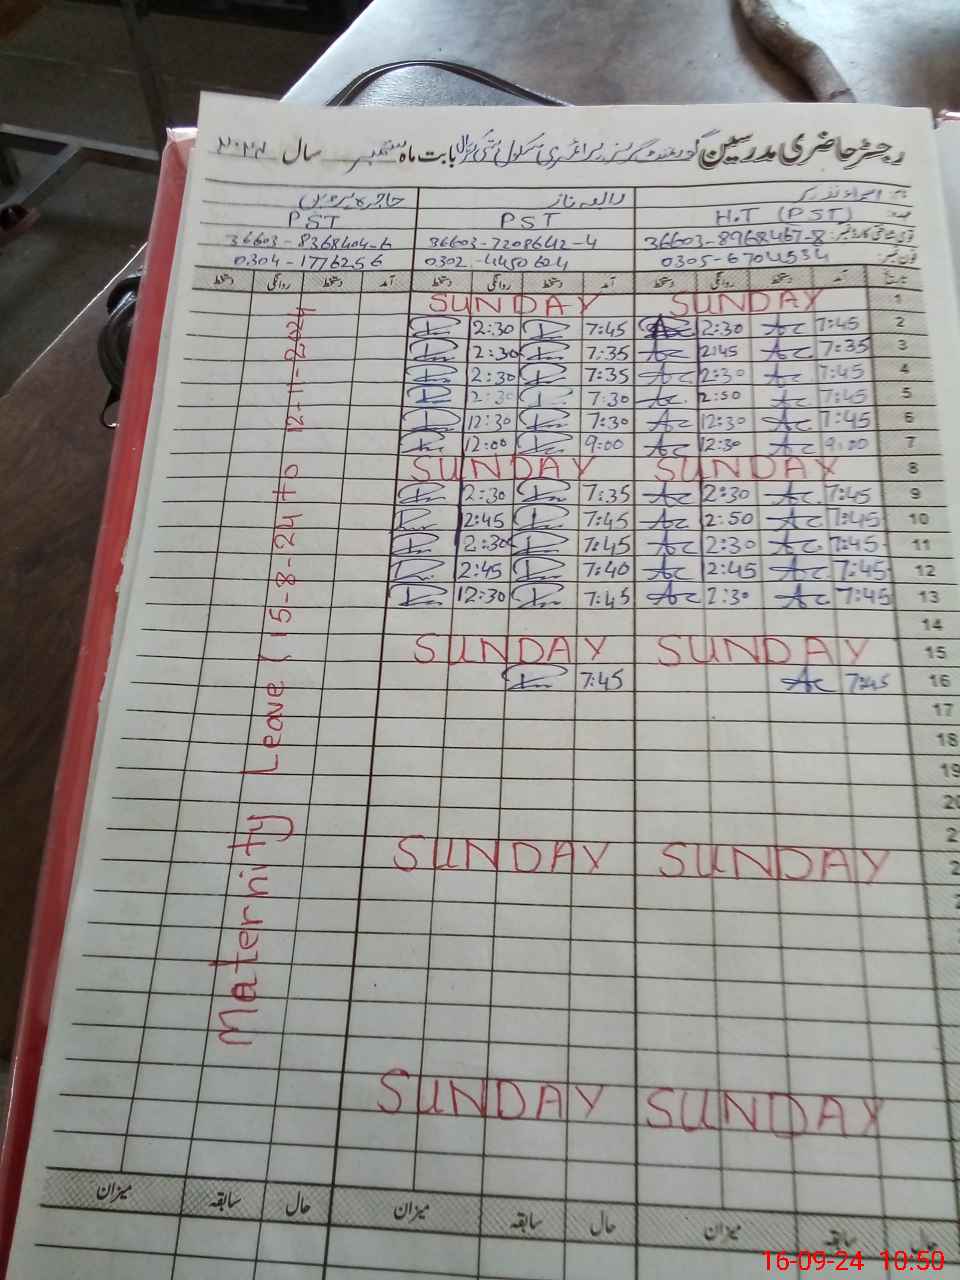 رجسٹر حاضری مدرسین گورنمنٹ گرلز پرائمری سکول بستی بابت ماہ ستمبر سال ۲۰۲۴
نام: اسماء نذیر رابعہ ناز حاجرہ پروین
عہدہ: H.T (PST) PST PST
قومی شناختی کارڈ نمبر: 36603-8968467-8 36603-7208642-4 36603-8368404-6
فون نمبر: 0305-6704534 0302-4450604 0304-1776256
تاریخ آمد دستخط روانگی دستخط آمد دستخط روانگی دستخط آمد دستخط روانگی دستخط
SUNDAY SUNDAY 1
2:30 7:45 2:30 7:45 2
2:30 7:35 2:45 7:35 3
2:30 7:35 2:30 7:45 4
2:30 7:30 2:50 7:45 5
12:30 7:30 12:30 7:45 6
12:00 9:00 12:30 9:00 7
SUNDAY SUNDAY 8
2:30 7:35 2:30 7:45 9
2:45 7:45 2:50 7:45 10
2:30 7:45 2:30 7:45 11
2:45 7:40 2:45 7:45 12
12:30 7:45 2:30 7:45 13
14
SUNDAY SUNDAY 15
7:45 7:45 16
17
18
19
20
SUNDAY SUNDAY
SUNDAY SUNDAY
Maternity Leave (15-8-24 to 12-11-2024
حال سابقہ میزان حال سابقہ میزان حال سابقہ میزان
16-09-24 10:50